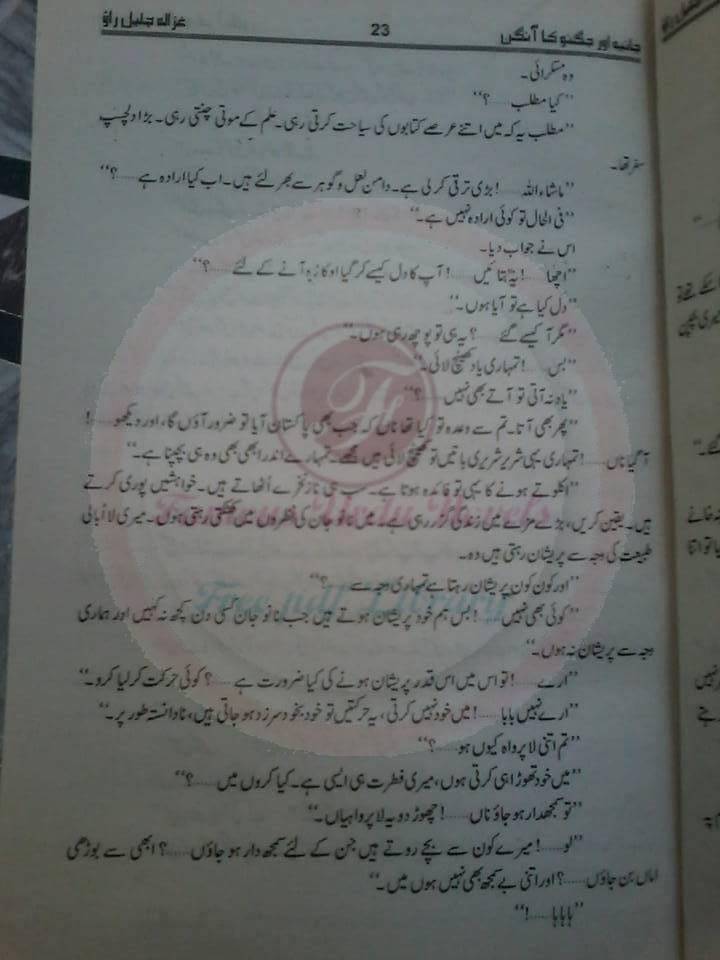 غزالہ جلیل راؤ
23
چاند اور جگنو کا آنگن
وہ مسکرائی۔
”کیا مطلب......؟“
”مطلب یہ کہ میں اتنے عرصے کتابوں کی سیاحت کرتی رہی۔ علم کے موتی چنتی رہی۔ بڑا دلچسپ
سفر تھا۔
”ماشاء اللہ......! بڑی ترقی کر لی ہے۔ دامن لعل و گوہر سے بھر لئے ہیں۔ اب کیا ارادہ ہے......؟“
”فی الحال تو کوئی ارادہ نہیں ہے۔“
اس نے جواب دیا۔
”اچھا......! یہ بتائیں......! آپ کا دل کیسے کر گیا اوکاڑہ آنے کے لئے......؟“
”دل کیا ہے تو آیا ہوں۔“
”مگر آ کیسے گئے......؟ یہ ہی تو پوچھ رہی ہوں۔“
”بس......! تمہاری یاد کھینچ لائی۔“
”یاد نہ آتی تو آتے بھی نہیں......؟“
”پھر بھی آتا۔ تم سے وعدہ تو کیا تھا ناں کہ جب بھی پاکستان آیا تو ضرور آؤں گا، اور دیکھو......!
آ گیا ناں......! تمہاری یہی شریر شریری باتیں تو کھینچ لائی ہیں مجھے۔ تمہارے اندر ابھی بھی وہ ہی بچپنا ہے۔“
”اکلوتے ہونے کا یہی تو فائدہ ہوتا ہے۔ سب ہی ناز نخرے اُٹھاتے ہیں۔ خواہشیں پوری کرتے
ہیں۔ یقین کریں، بڑے مزے میں زندگی گزر رہی ہے۔ میں نانو جان کی نظروں میں کھٹکتی رہتی ہوں۔ میری لا اُبالی
طبیعت کی وجہ سے پریشان رہتی ہیں وہ۔
”اور کون کون پریشان رہتا ہے تمہاری وجہ سے......؟“
”کوئی بھی نہیں......! بس ہم خود پریشان ہوتے ہیں جب نانو جان کسی دن کچھ نہ کہیں اور ہماری
وجہ سے پریشان نہ ہوں۔“
”ارے......! تو اس میں اس قدر پریشان ہونے کی کیا ضرورت ہے......؟ کوئی حرکت کر لیا کرو۔“
”ارے نہیں بابا......! میں خود نہیں کرتی، یہ حرکتیں تو خود بخود سرزد ہو جاتی ہیں، نادانستہ طور پر۔“
”تم اتنی لا پرواہ کیوں ہو......؟“
”میں خود تھوڑا ہی کرتی ہوں، میری فطرت ہی ایسی ہے۔ کیا کروں میں......؟“
”تو سمجھدار ہو جاؤ ناں......! چھوڑ دو یہ لا پرواہیاں۔“
”لو......! میرے کون سے بچے روتے ہیں جن کے لئے سمجھ دار ہو جاؤں......؟ ابھی سے بوڑھی
اماں بن جاؤں......؟ اور اتنی بے سمجھ بھی نہیں ہوں میں۔“
”ہاہاہا......!“
Famous Urdu Novels
Free pdf Library